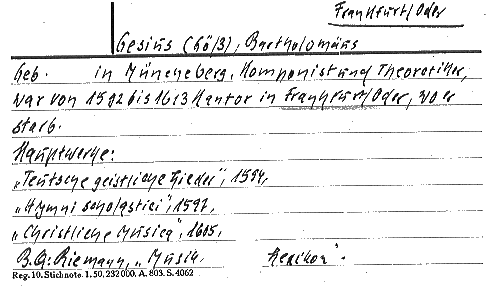 Frankfurt/Oder
Gesius (Göß), Bartholomäus
Geb. in Müncheberg. Komponist und Theoretiker,
war von 1592 bis 1613 Kantor in Frankfurt/Oder, wo er
starb.
Hauptwerke:
„Teutsche geistliche Lieder", 1594,
„Hymni scholastici", 1597,
„Christliche Musica", 1605,
B.Q.: Riemann, „Musik. Lexikon".
Reg. 10. Stichnote. 1. 50, 232 000. A. 803. S. 4062